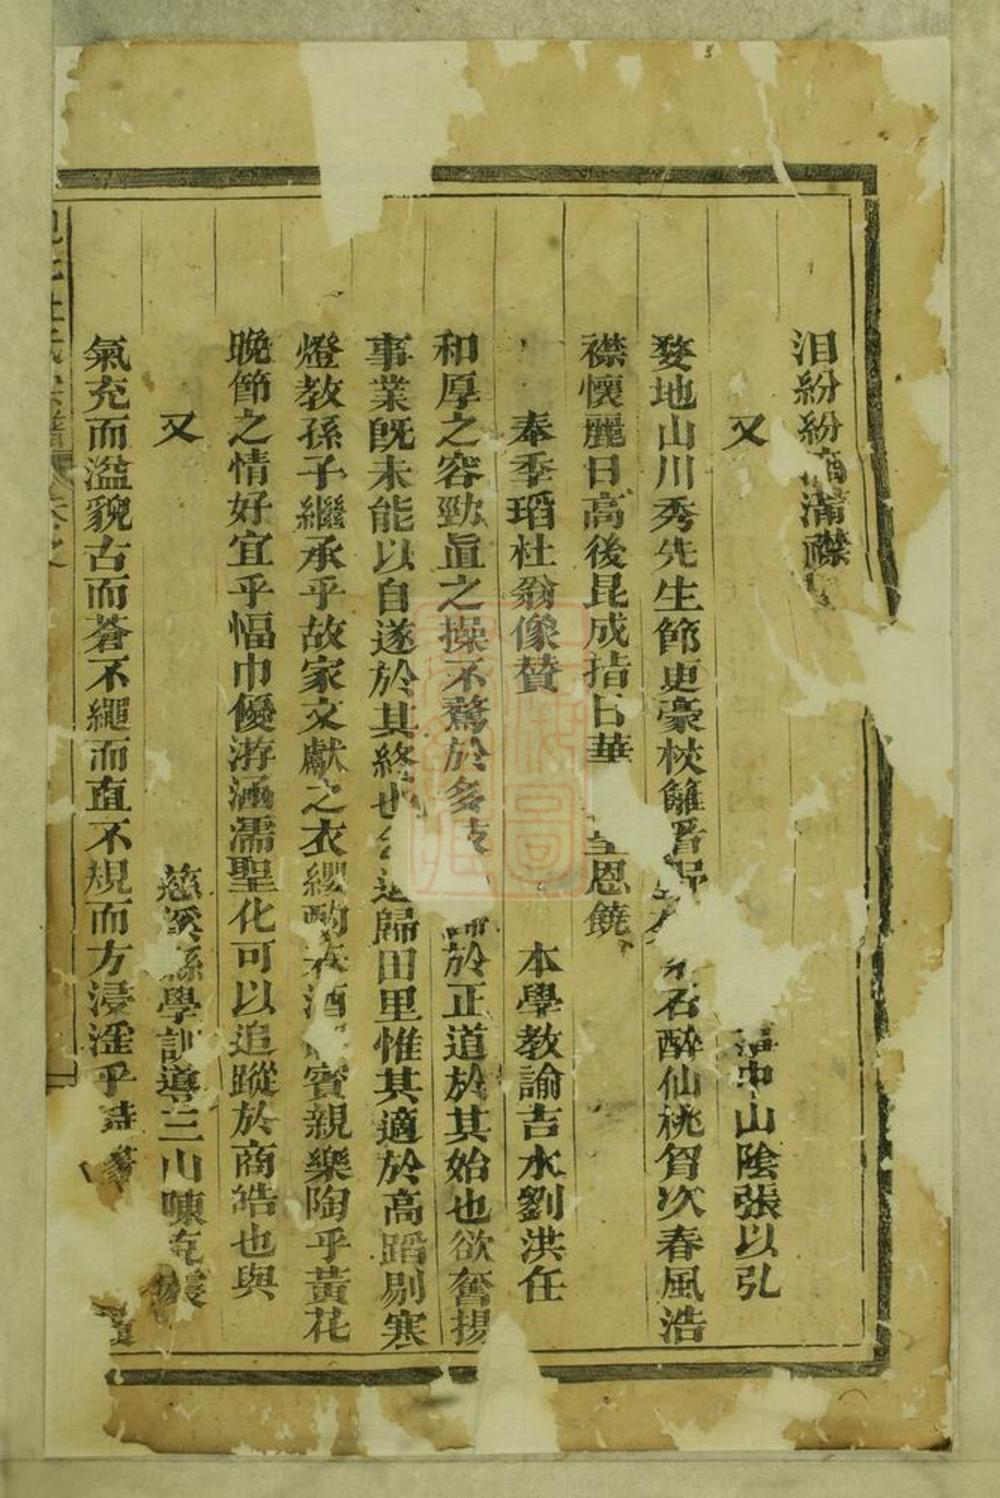 泪紛紛滴滿襟
又 中山陰張以弘
婺地山川秀先生節更豪杖 石醉仙桃賀次春風浩
襟懷麗日高後昆成指日華 皇恩鐃
奉季瑫杜翁像赞 本學教諭吉水劉洪任
和厚之容勁眞之操不鶩於多 於正道於其始也欲奮揚
事業旣未能以自遂於其終也 歸田里惟其適於高蹈剔寒
燈教孫子繼承乎故家文獻之衣纓 酒 賓親樂陶乎黃花
晚節之情好宜乎幅巾優游涵濡聖化可以追蹤於商皓也與
又 慈溪縣學訓導三山陳
氣充而溢貌古而蒼不繩而直不規而方浸淫乎詩